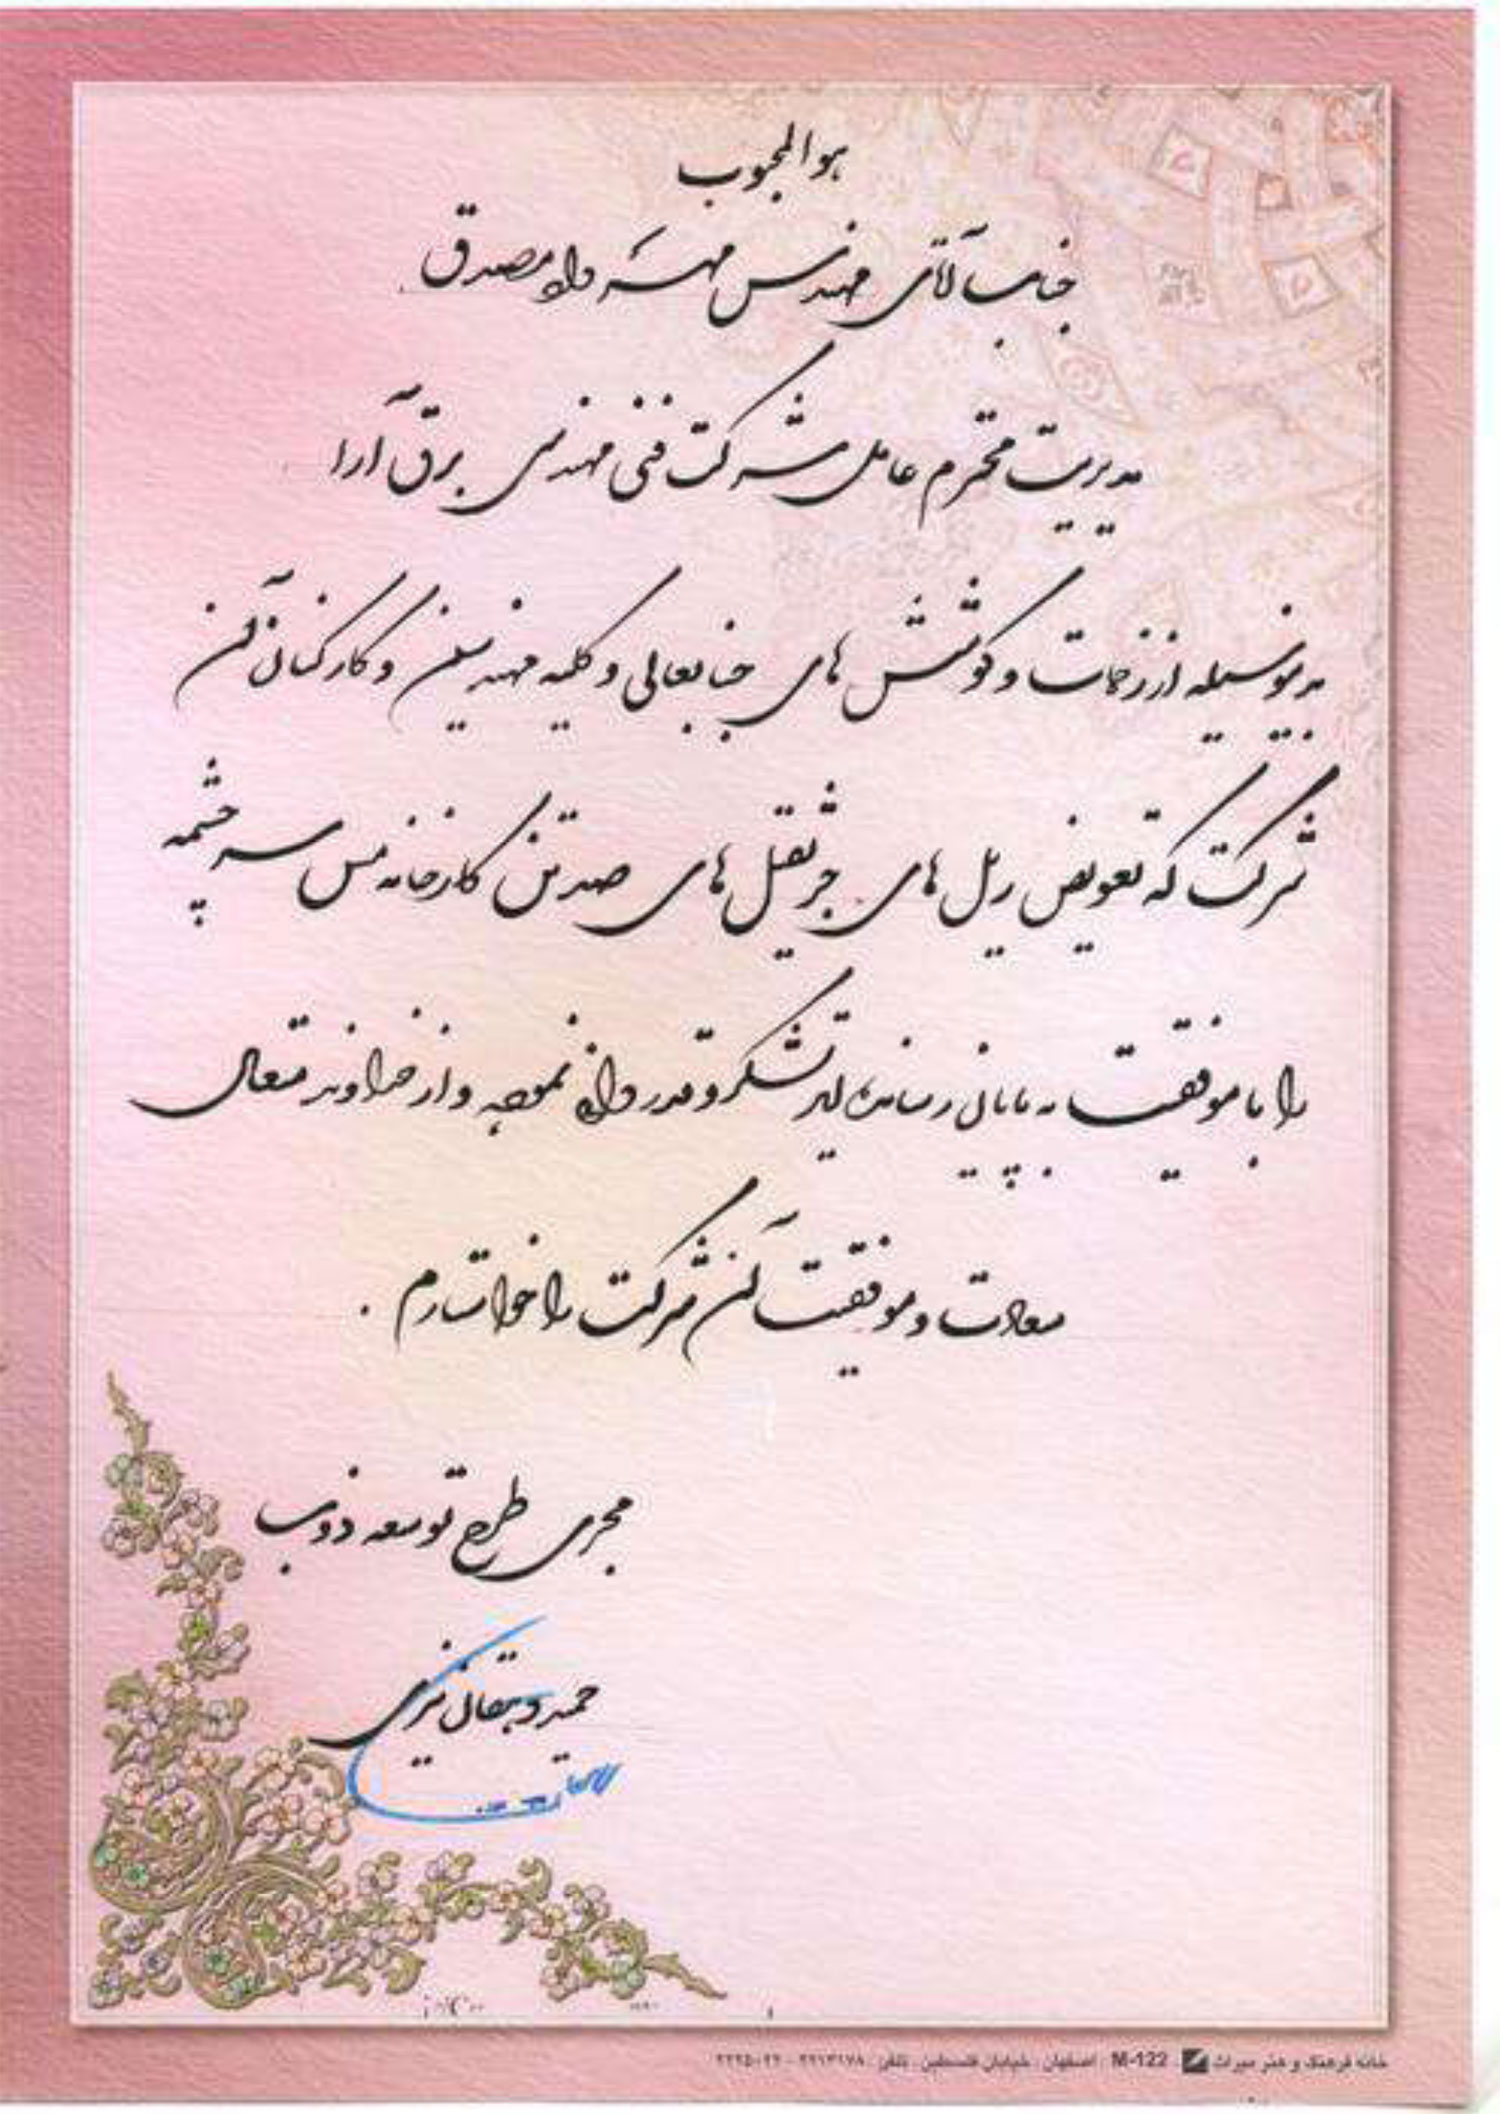 هو المحبوب
جناب آقای مهندس مصدق
مدیریت محترم عامل شرکت فنی مهندسی برق آرا
بدینوسیله از زحمات و کوشش های جنابعالی و کلیه مهندسین و کارکنان آن
شرکت که تعویض ریل های جرثقیل های صدتن کارخانه مس سرچشمه
را با موفقیت به پایان رسانده‌اید تشکر و قدردانی نموده و از خداوند متعال
سعادت و موفقیت آن شرکت را خواستارم .
مجری طرح توسعه ذوب
حمید
خانه فرهنگ و هنر میراث M-122 اصفهان ، خیابان فلسطین ، تلفن : ۲۲۱۳۱۷۸ - ۲۲۲۵۰۲۲